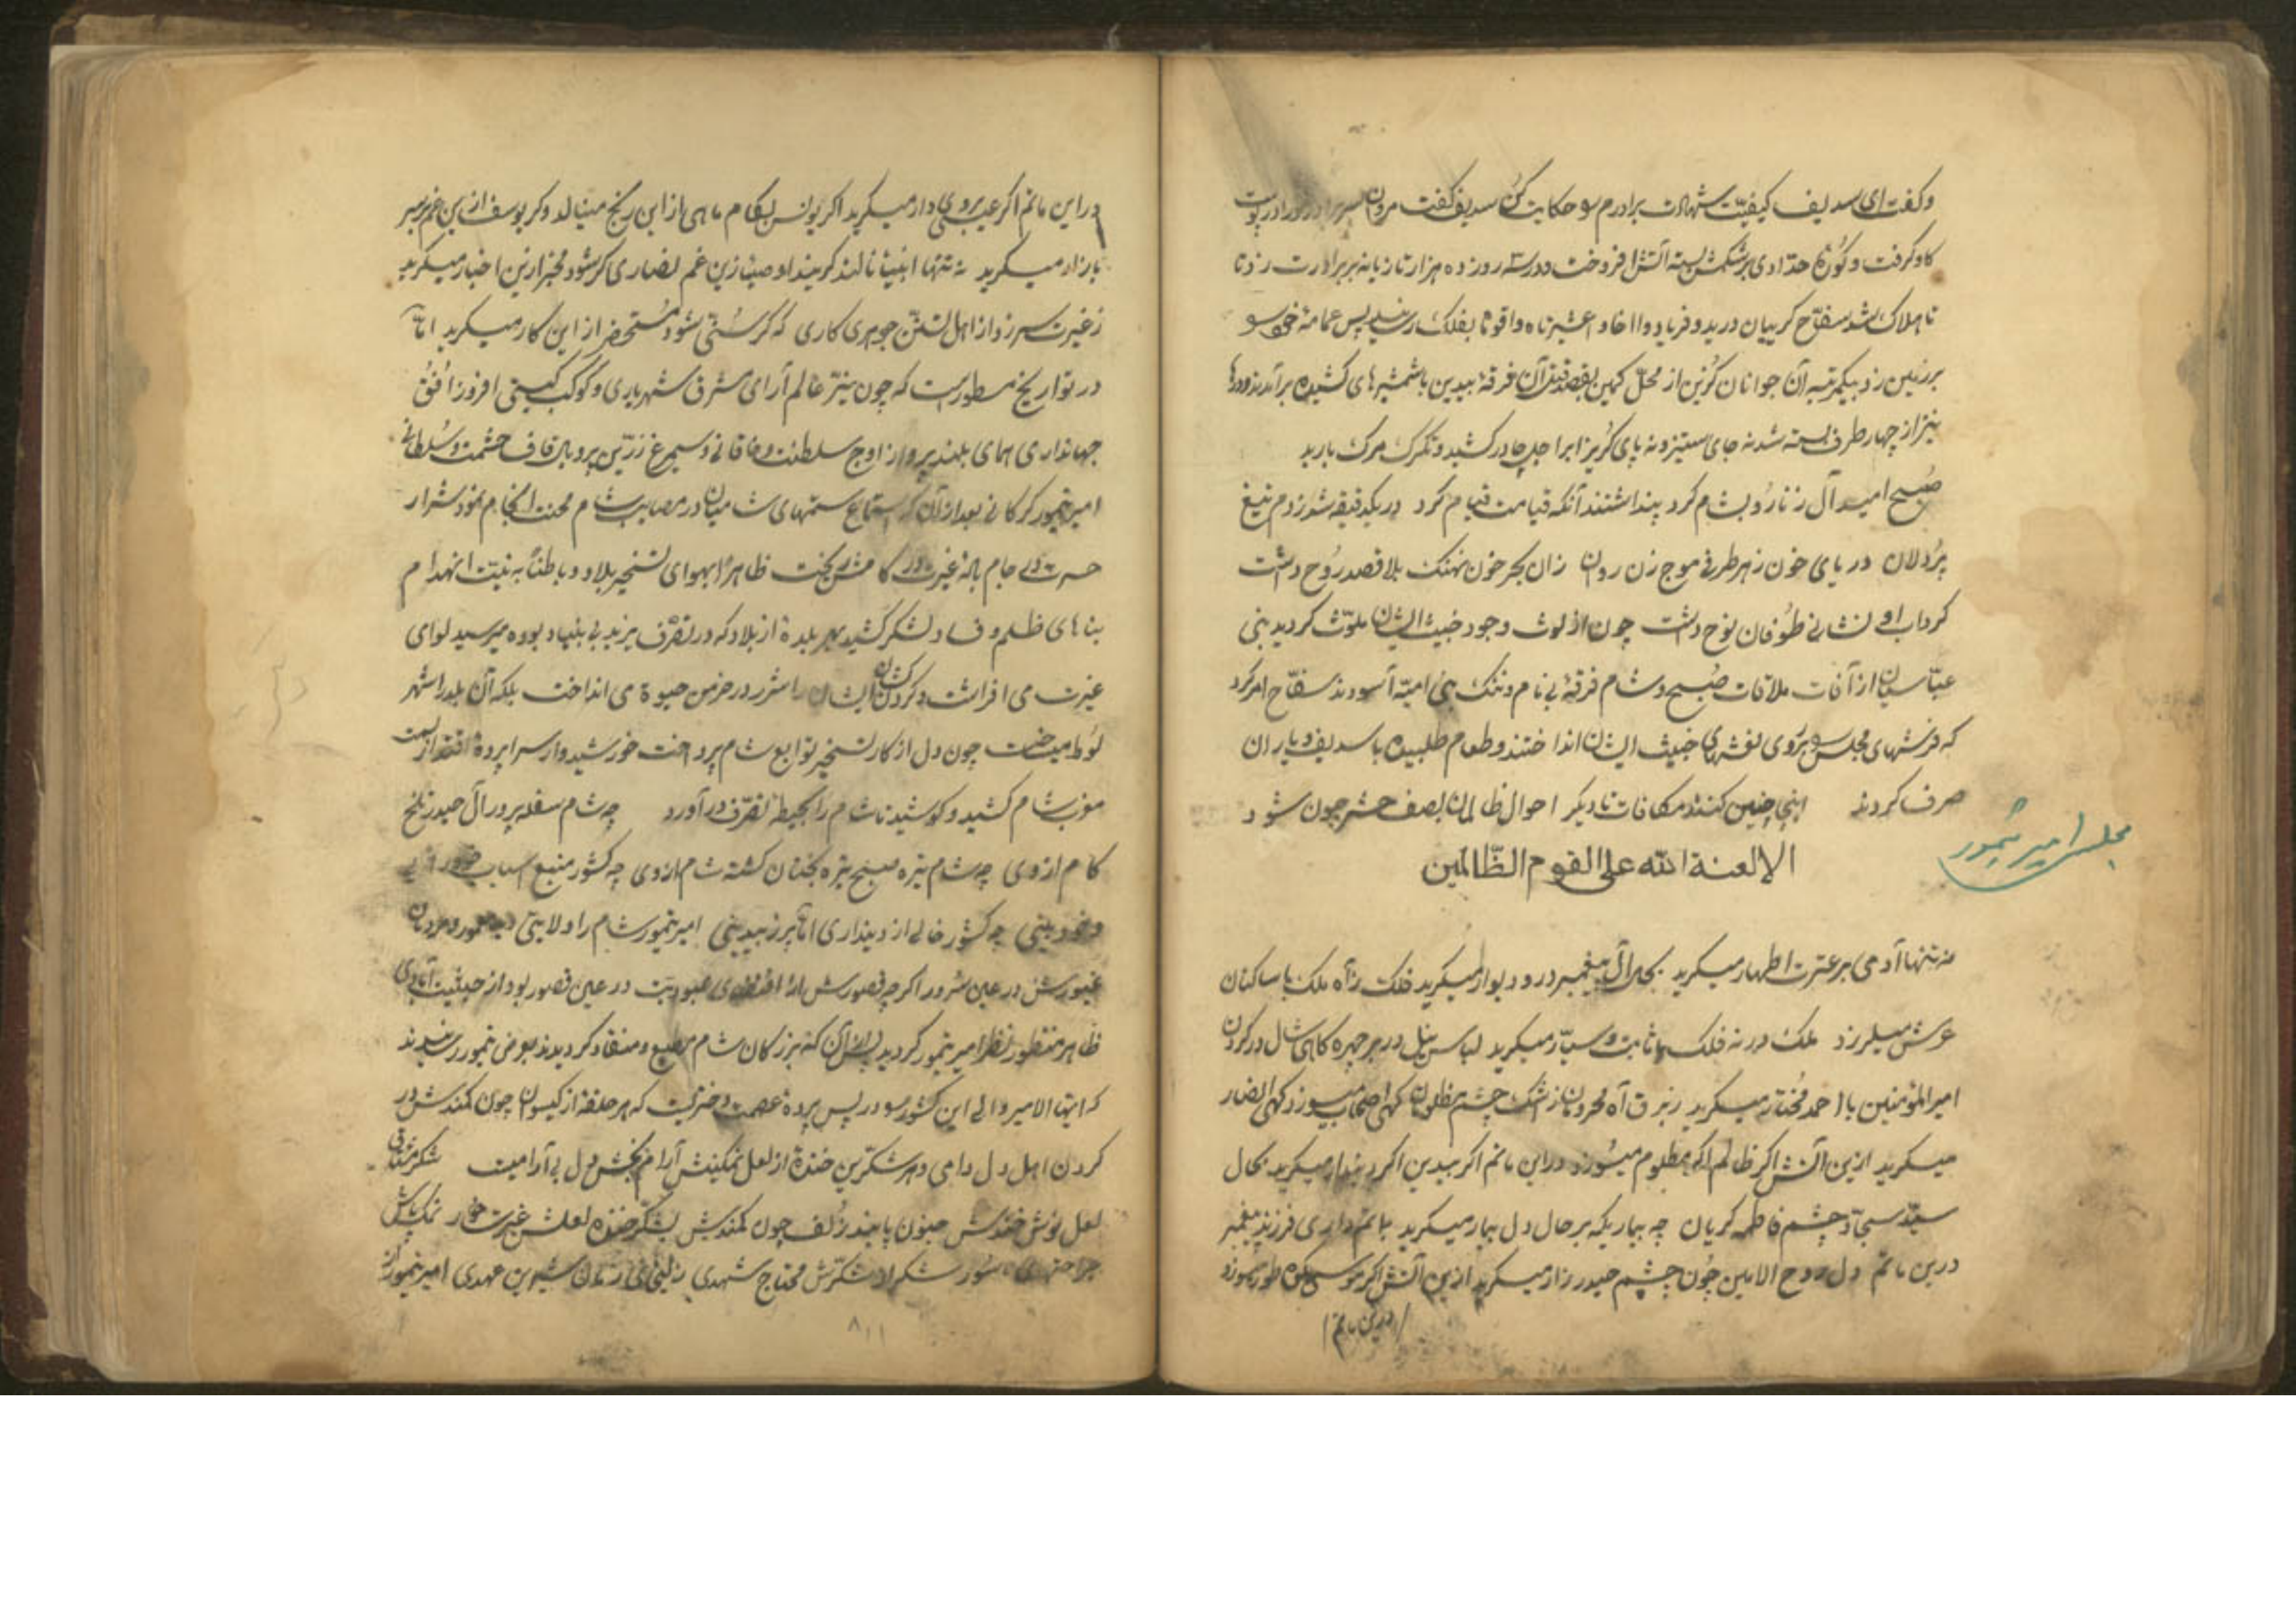 وکفت ای سدیف کیفیّت شهادت برادرم سو حکایت کن سدیف کفت مروان سر برادرت را در پوست
کاو کرفت و کوره حدّادی بر شکمش بسته آتش افروخت و در سه روز ده هزار تازیانه بر برادرت زد تا
تا هلاک شد سفّاح کریبان درید و فریاد وااخاه و اعشیرتاه واقوتا بفلک رسانید پس عمامه خود سو
بر زمین زد بیکمرتبه آن جوانان کزین از محلّ کمین بقصد قتل آن فرقه بیدین با شمشیرهای کشیده برآمدند و درها
نیز از چهار طرف بسته شد نه جای ستیز و نه پای کریز ابر اجل چادر کشید و تکرک مرک بارید
صبح امید آل زنا رو بشام کرد پنداشتند آنکه قیامت قیام کرد در یکدقیقه شد ز دم تیغ
پردلان دریای خون ز هر طرفی موج زن روان زان بحر خون نهنک بلا قصد روح داشت
کرداب او نشانی طوفان نوح داشت چون از لوث وجود خبیث ایشان ملوّث کردید بنی
عبّاسیان از آفات ملاقات صبح و شام فرقه بی نام و ننک بنی امیّه آسودند سفّاح امر کرد
که فرشهای مجلس سو بروی نعشهای خبیث ایشان انداختند و طعام طلبیده با سدیف و یاران
صرف کردند اینجا چنین کنند مکافات تا دیکر احوال ظالمان بصف حشر چون شود
الا لعنة الله علی القوم الظّالمین
مجلس امیر تیمور
نه تنها آدمی بر عترت اطهار میکرید بحال آل پیغمبر در و دیوار میکرید فلک زآه ملک با ساکنان
عرش میلرزد ملک در نه فلک با ثابت و سیّار میکرید لباس نیل در بر چهره کاهی شال در کردن
امیرالمؤمنین با احمد مختار میکرید ز برق آه محرومان ز اشک چشم مظلومان کهی اصحاب میسوزد کهی انصار
میکرید ازین آتش اکر ظالم اکر مظلوم میسوزد در این ماتم اکر بیدین اکر دیندار میکرید بحال
سیّد سجّاد چشم فاطمه کریان چه بیماریکه بر حال دل بیمار میکرید بماتم داری فرزند پیغمبر
درین ماتم دل روح الامین چون چشم حیدر زار میکرید ازین آتش اکر موسی بکوه طور میسوزد
درین ماتم
در این ماتم اکر عیسی بروی دار میکرید اکر یونس بکام ماهی از این رنج مینالد وکر یوسف ازین غم بر سر
بازار میکرید نه تنها انبیا نالند کریند اوصیا زین غم نصاری کر شود مخبر ازین اخبار میکرید
ز غیرت سر زد از اهل تسنّن جوهری کاری که کر سنّی شود مستحضر از این کار میکرید امّا
در تواریخ مسطور است که چون نیّر عالم آرای شرف شهریاری و کوکب کیتی افروز افق
جهانداری همای بلند پرواز اوج سلطنت و خاقانی و سیمرغ زرّین پر و بال قاف حشمت و سلطانی
امیر تیمور کرکانی بعد از آن که استماع ستمهای شامیان در مصایب شام محنت انجام نمود شرار
حسرت در جام باده غیرت در کامش ریخت ظاهراً بهوای تسخیر بلاد و باطناً به نیّت انهدام
بناهای ظلم و فساد لشکر کشید بهر بلده از بلاد که در تصرّف یزید بی بنیاد بوده میرسید لوای
غیرت می افراشت و کردن کشان ایشان را شرر در خرمن حیوة می انداخت بلکه آن بلد را شهر
لوط میساخت چون دل از کار تسخیر توابع شام پرداخت خورشیدوار سراپرده اقتدار بسمت
مغرب شام کشید و کوشید تا شام را بحیطه تصرّف درآورد چه شام سفله پرور آل حیدر تلخ
کام از وی چه شام تیره صبح تیره بختان کشته شام از وی چه کشور منبع اسباب
و خودبینی چه کشور خالی از دینداری امّا پر ز بیدینی امیر تیمور شام را ولایتی دید معمور و مردمان
غیورش در عین سرور اکرچه قصورش از اقتضای عبودیّت در عین قصور بود از حیثیت آبادی
ظاهر منظور نظر امیر تیمور کردید پس از آن که بزرکان شام مطیع و منقاد کردیدند بعرض تیمور رسانیدند
که ایّها الامیر والی این کشور سو در پس پرده عصمت دختریست که هر حلقه از کیسوان چون کمندش در
کردن اهل دل دامی و هر شکّرین خنده از لعل نمکینش آرام بخش دل بی آرامیست
لعل نوش خندش جنون پابند زلف چون کمندش بشکّر خنده لعلش غیرت نمک پاش
جراحتهای ناسور شکر از شکّرش محتاج شهدی زلیخائی شیرین عهدی امیر تیمور از
۸۱۱